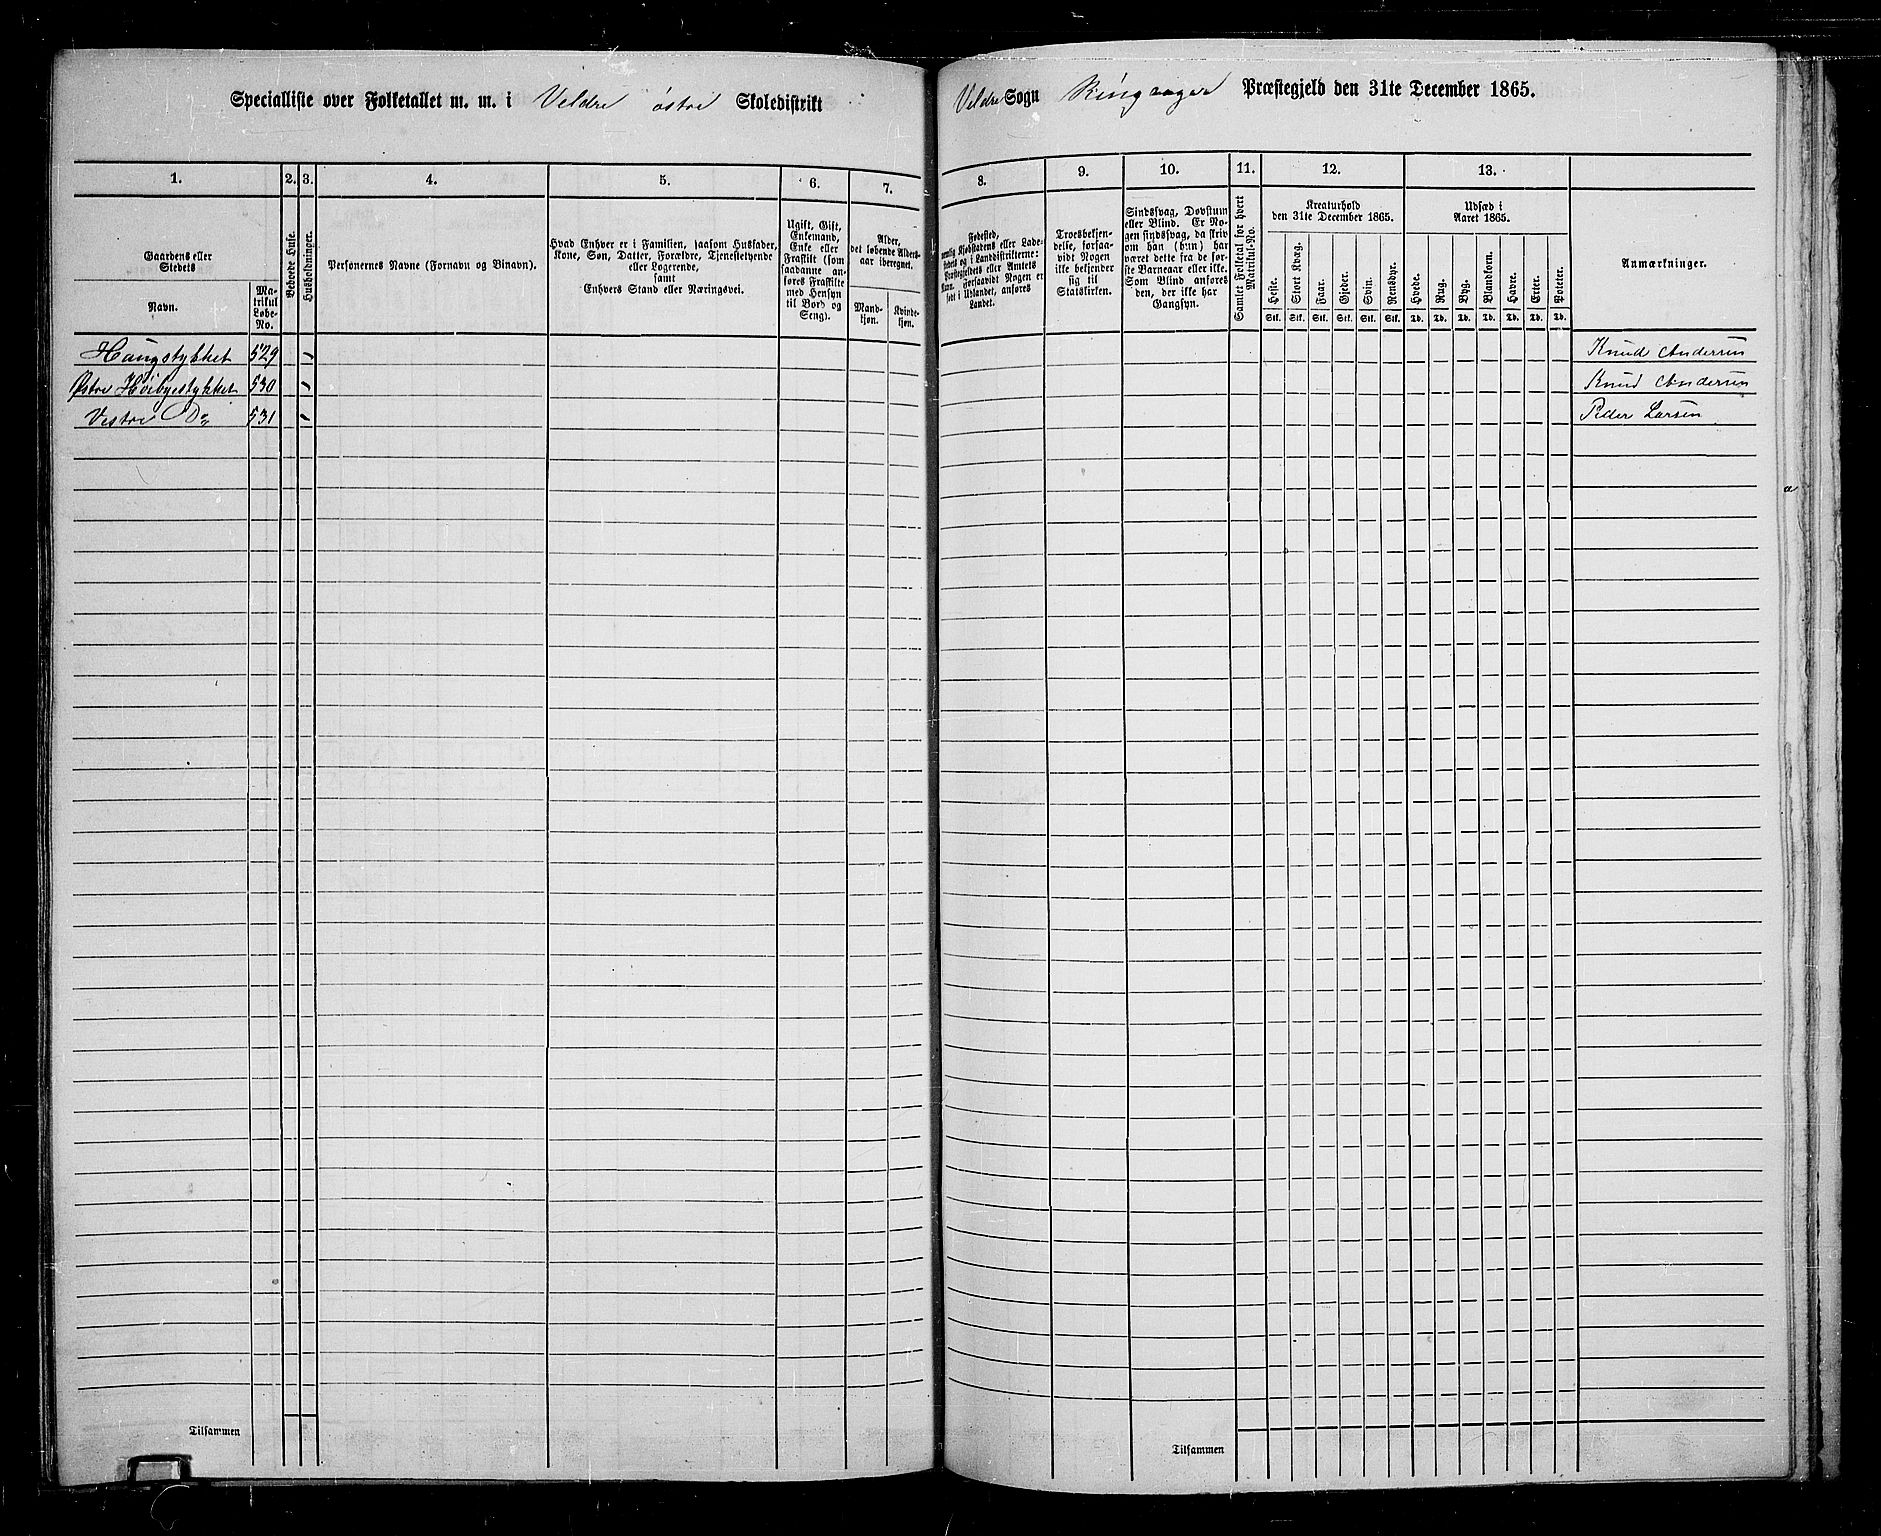 Specialliste over Folketallet m. m. i Veldre østre Skoledistrikt
Veldre Sogn Ringsager Præstegjeld den 31te December 1865.
1. 2. 3. 4. 5. 6. 7.
8. 9. 10. 11. 12. 13.
Gaardens eller
Stedets
Navn.
Ma-
trikul
Løbe-
No.
Beboede Huse.
Husholdninger.
Personernes Navne (Fornavn og Binavn).
Hvad Enhver er i Familien, saasom Husfader,
Kone, Søn, Datter, Forældre, Tjenestetyende
eller Logerende,
samt
Enhvers Stand eller Næringsvei.
Ugift, Gift,
Enkemand,
Enke eller
Fraskilt (som
saadanne an-
føres Fraskilte
med Hensyn
til Bord og
Seng).
Alder,
det løbende Alders-
aar iberegnet.
Mand-
kjøn.
Kvinde-
kjøn.
Fødested,
nemlig Kjøbstadens eller Lade-
stedets og i Landdistrikterne:
Præstegjeldets eller Amtets
Navn. Forsaavidt Nogen er
født i Udlandet, anføres
Landet.
Troesbekjen-
delse, forsaa-
vidt Nogen
ikke bekjender
sig til
Statskirken.
Sindssvag, Døvstum
eller Blind. Er No-
gen sindssvag, da skriv
om han (hun) har
været dette fra de før-
ste Barneaar eller ikke.
Som Blind anføres
den, der ikke har
Gangsyn.
Samlet Folketal for hvert
Matrikul-No.
Kreaturhold
den 31te December 1865.
Heste. Stort Kvæg. Faar. Gjeder. Svin. Rensdyr.
Stk. Stk. Stk. Stk. Stk. Stk.
Udsæd i
Aaret 1865.
Hvede. Rug. Byg. Blandkorn. Havre. Erter. Poteter.
Td. Td. Td. Td. Td. Td. Td.
Anmærkninger.
Haugstykket 529 Knud Andersen
Østre Høibyestykket 530 Knud Andersen
Vestre Do 531 Peder Larsen
Tilsammen
Tilsammen